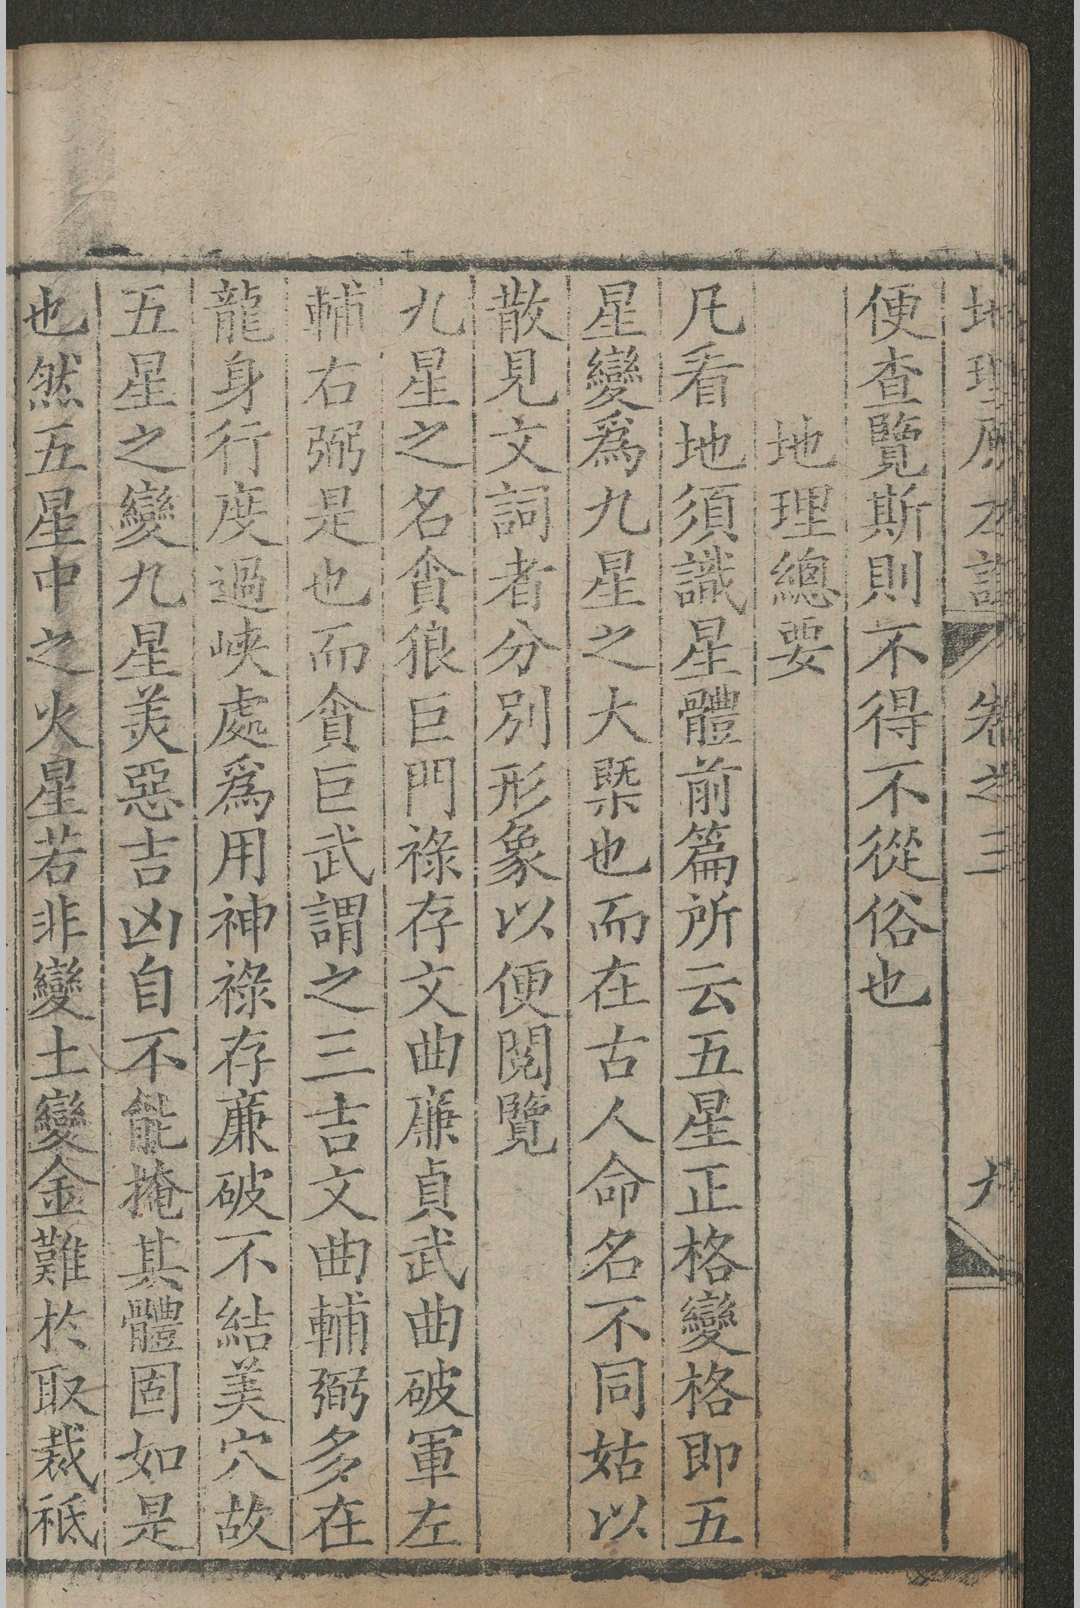 地理原本說 卷之三 九
便查覽斯則不得不從俗也
地理總要
凡看地須識星體前篇所云五星正格變格即五
星變爲九星之大槩也而在古人命名不同姑以
散見文詞者分別形象以便閱覽
九星之名貪狼巨門祿存文曲廉貞武曲破軍左
輔右弼是也而貪巨武謂之三吉文曲輔弼多在
龍身行度過峽處爲用神祿存廉破不結美穴故
五星之變九星美惡吉凶自不能掩其體固如是
也然五星中之火星若非變土變金難於取裁祗